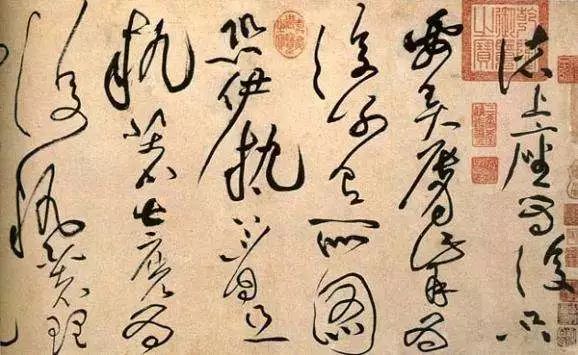 諸上座為復只
要弄脣觜為
復別有所圖
恐伊執著且
執著甚麼為
復執著理